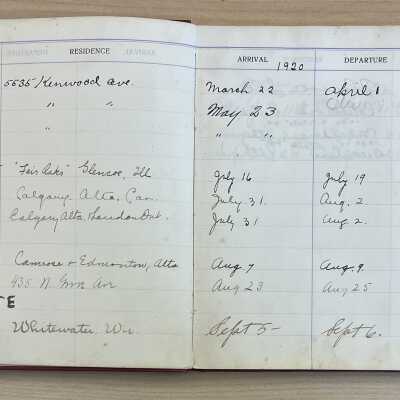 RESIDENCE ARRIVAL DEPARTURE
1920
5535 Kenwood ave. March 22 April 1
" " May 23
" " "
"Fair Oaks" Glencoe, Ill July 16 July 19
Calgary, Alta. Can. July 31. Aug. 2
Calgary Alta. London Ont. July 31 Aug 2.
Camrose & Edmonton, Alta Aug 7 Aug. 9
935 N. Ave Aug 23 Aug 25
E
Whitewater, Wis. Sept 5- Sept 6.